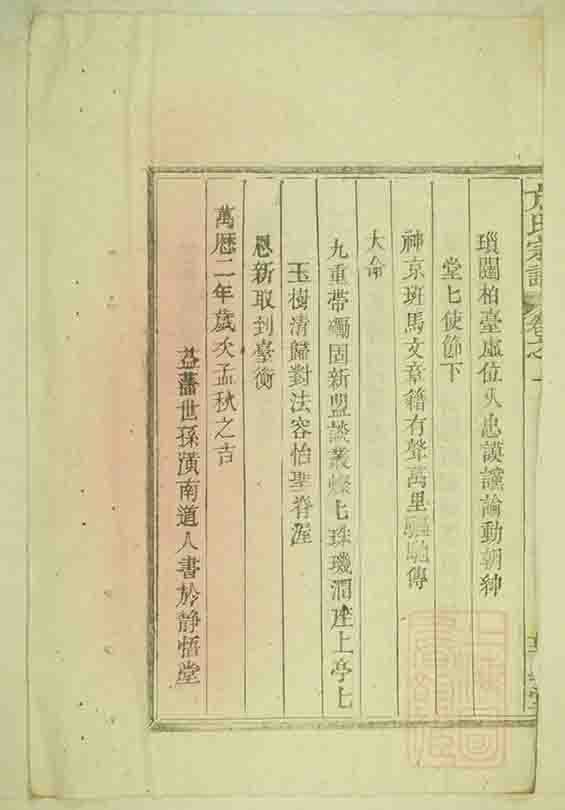 瑣闥柏臺虛位久忠謨讜論動朝紳
堂匕使節下
神京班馬文章籍有聲萬里驅馳傳
大命
九重帶礪固新盟談叢燦匕珠璣潤座上亭匕
玉樹清歸對法容怡聖眷渥
恩新取到臺衡
萬曆二年歲次孟秋之吉
益藩世孫潢南道人書於靜悟堂
氏宗譜 卷之一